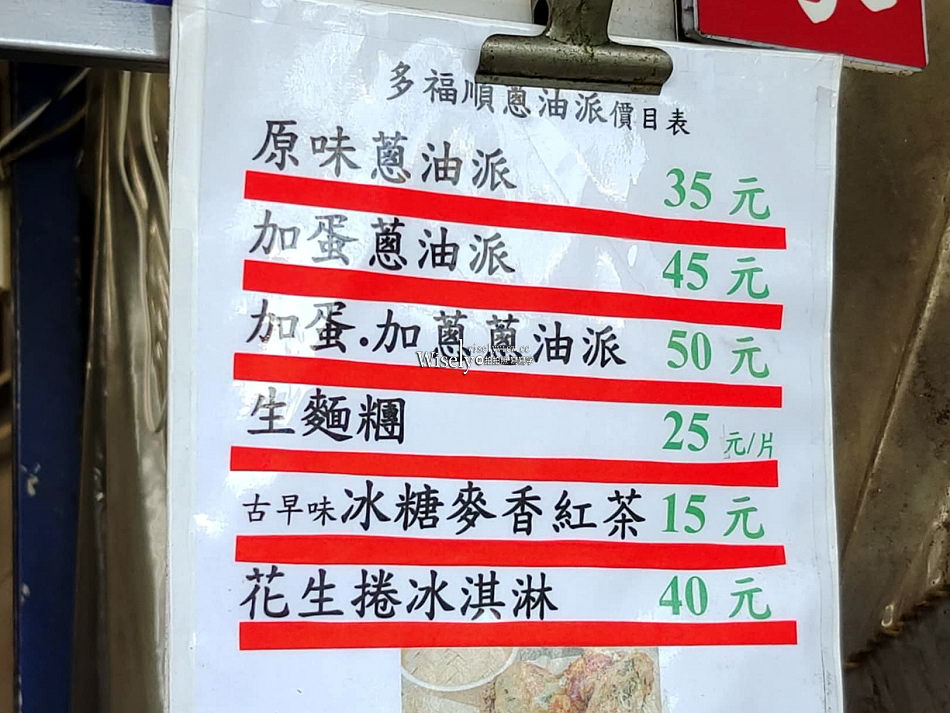 多福順蔥油派價目表
原味蔥油派 35 元
加蛋蔥油派 45 元
加蛋.加蔥蔥油派 50 元
Wisely
生麵糰 25 元/片
古早味冰糖麥香紅茶 15 元
花生捲冰淇淋 40 元